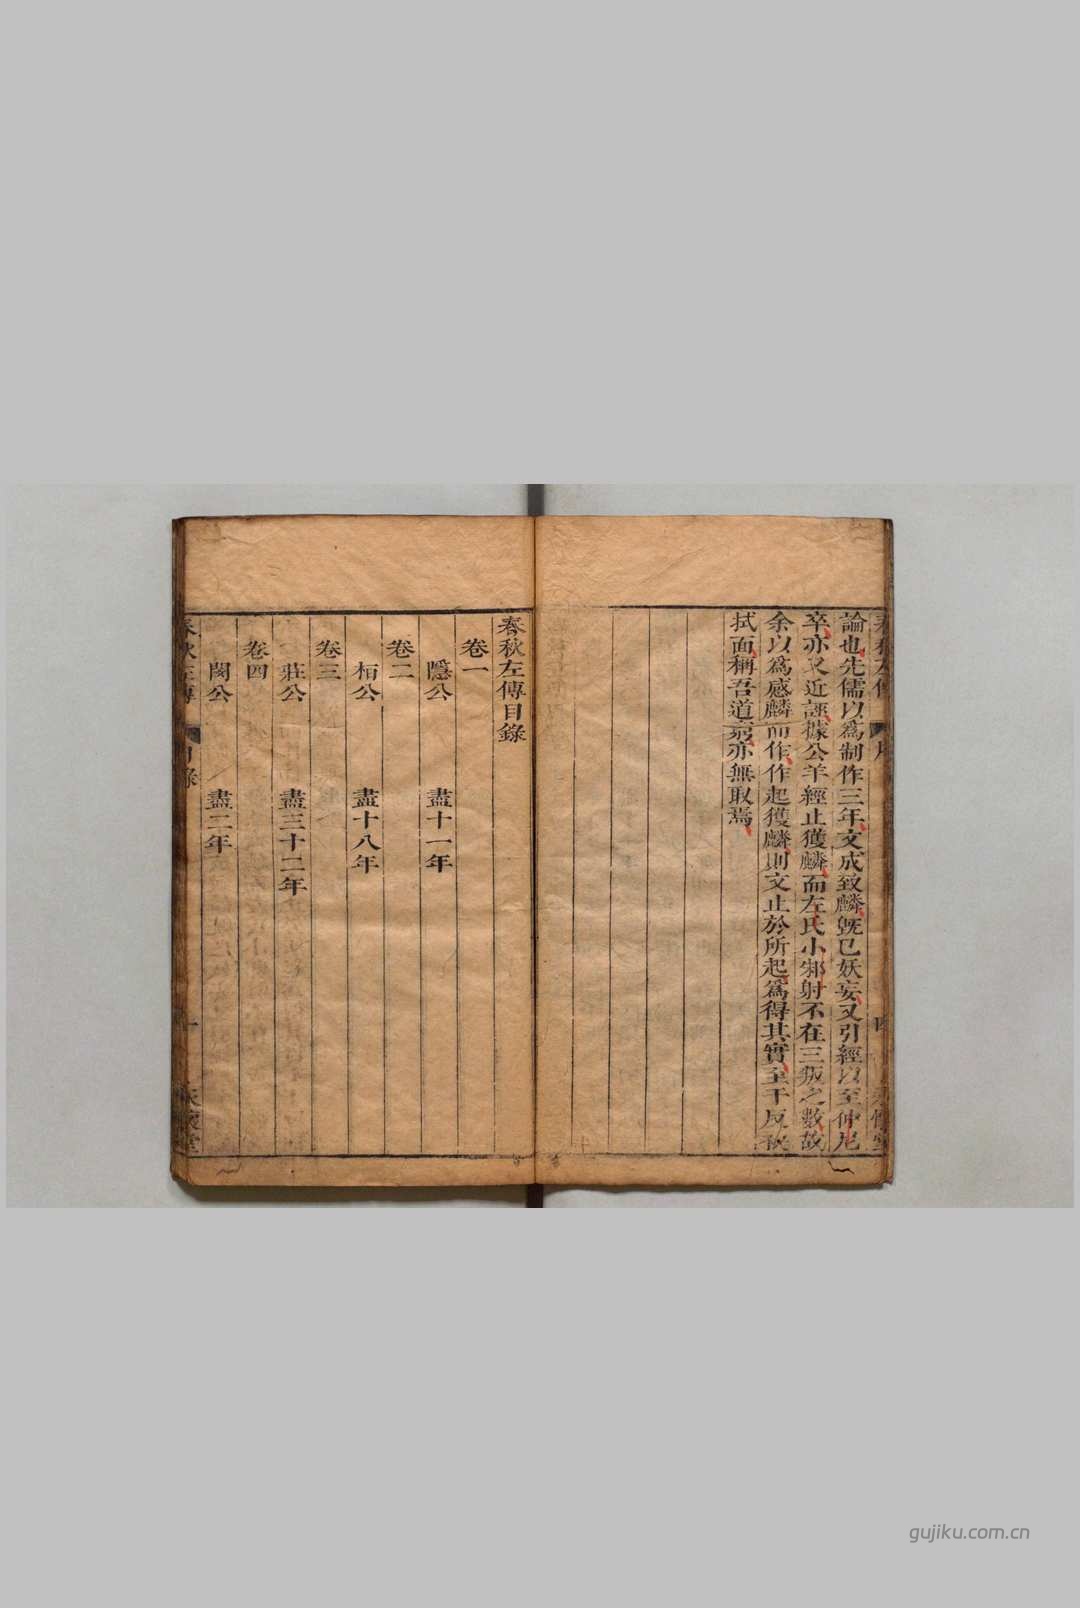 論也先儒以爲制作三年文成致麟旣已妖妄又引經以至仲尼
卒亦又近誣據公羊經止獲麟而左氏小邾射不在三叛之數故
余以爲感麟而作作起獲麟則文止於所起爲得其實至于反袂
拭面稱吾道窮亦無取焉
春秋左傳目錄
卷一
隱公 盡十一年
卷二
桓公 盡十八年
卷三
莊公 盡三十二年
卷四
閔公 盡二年
春秋左傳 目錄 一
gujiku.com.cn